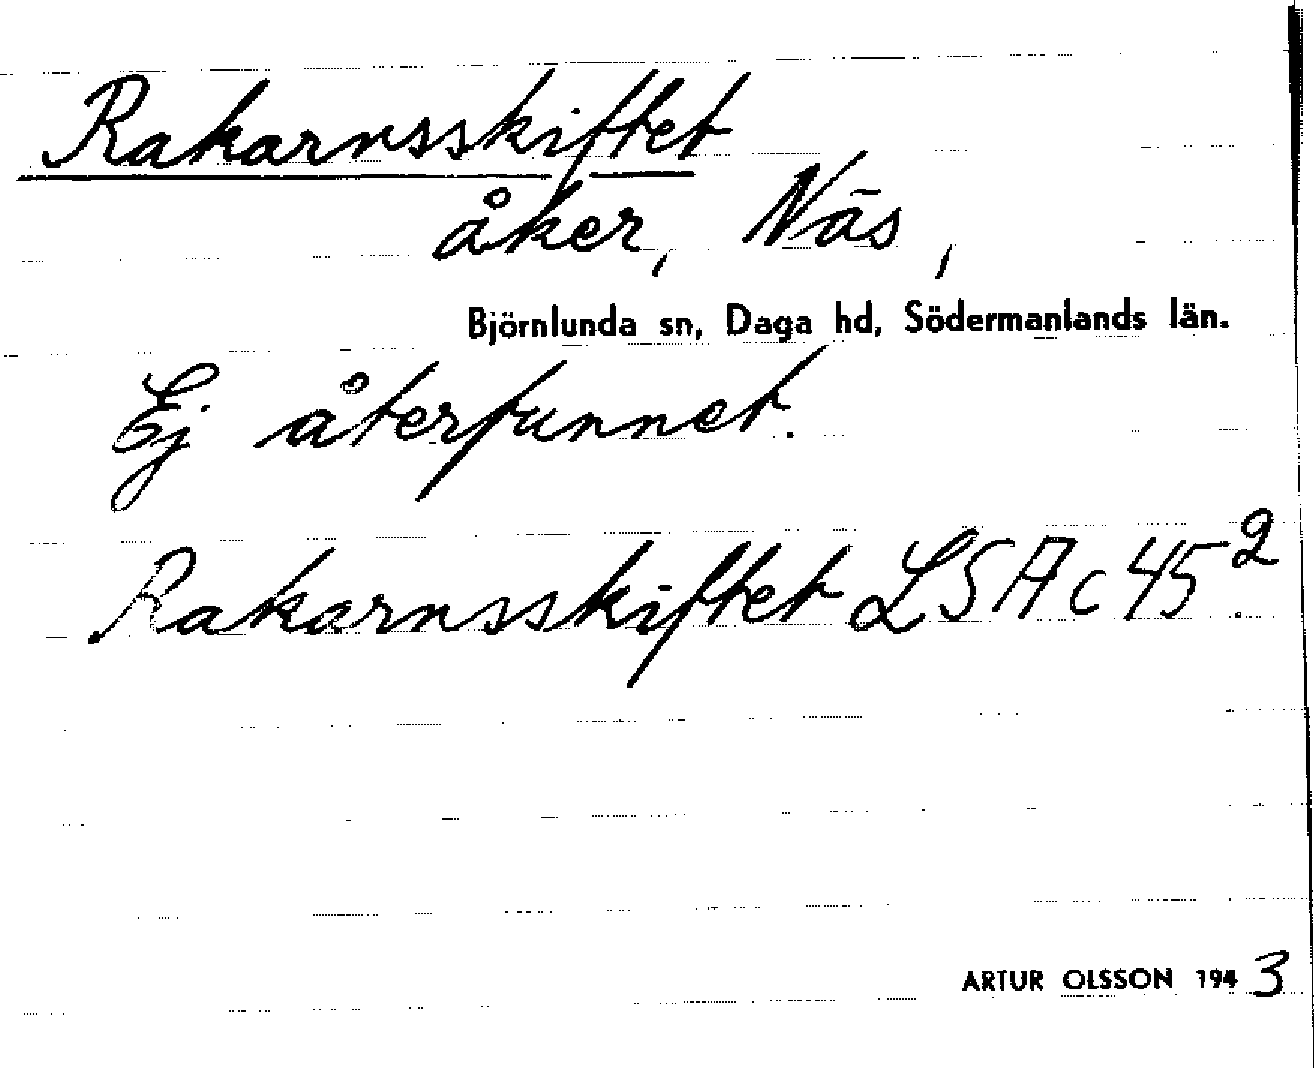 Rakarnsskiftet
åker, Näs,
Björnlunda sn, Daga hd, Södermanlands län.
Ej återfunnet.
Rakarnsskiftet LSA c 45²
ARTUR OLSSON 1943